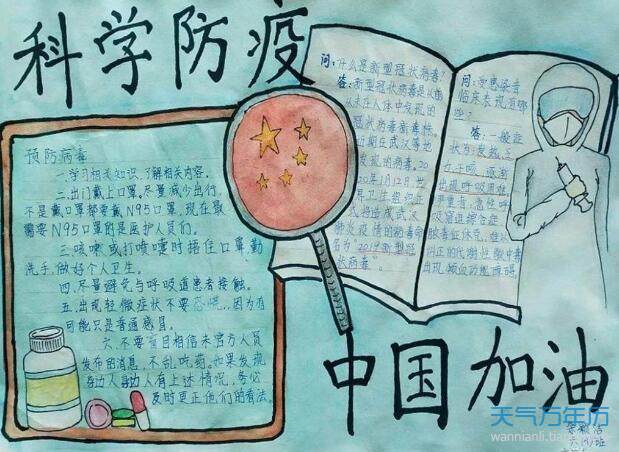 科学防疫
预防病毒
一.学习相关知识,了解相关内容。
二.出门戴上口罩,尽量减少出行,
不是戴口罩都要戴N95口罩,现在最
需要N95口罩的是医护人员们。
三.咳嗽或打喷嚏时捂住口罩,勤
洗手,做好个人卫生。
四.尽量避免与呼吸道患者接触。
五.出现轻微症状不要恐慌,因为有
可能只是普通感冒。
六.不要盲目相信未官方人员
发布的消息,不乱吃药,如果发现
身边人身边人有上述情况,务必
及时更正他们的看法。
问:什么是新型冠状病毒?
答:新型冠状病毒是以前
从未在人体中发现的
冠状病毒新毒株。
近期在武汉等地
发现的病毒。20
20年1月12日,世
界卫生组织正
式将造成武汉
肺炎疫情的病毒命
名为"2019新型冠
状病毒"。
问:
感染者
临床表现有哪
些?
答:一般症
状有:发热、乏
力、干咳、逐渐
出现呼吸困难
严重者:急性呼
吸窘迫综合症
脓毒症休克、难以
纠正的代谢性酸中毒
出现凝血功能障碍
中国加油
天气万年历
wannianli.tia